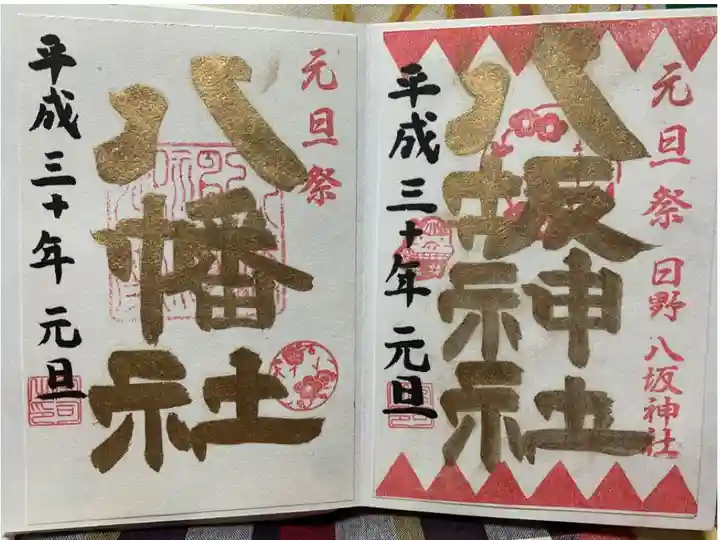 元旦祭
日野 八坂神社
八坂神社
平成三十年 元旦
元旦祭
八幡社
平成三十年 元旦